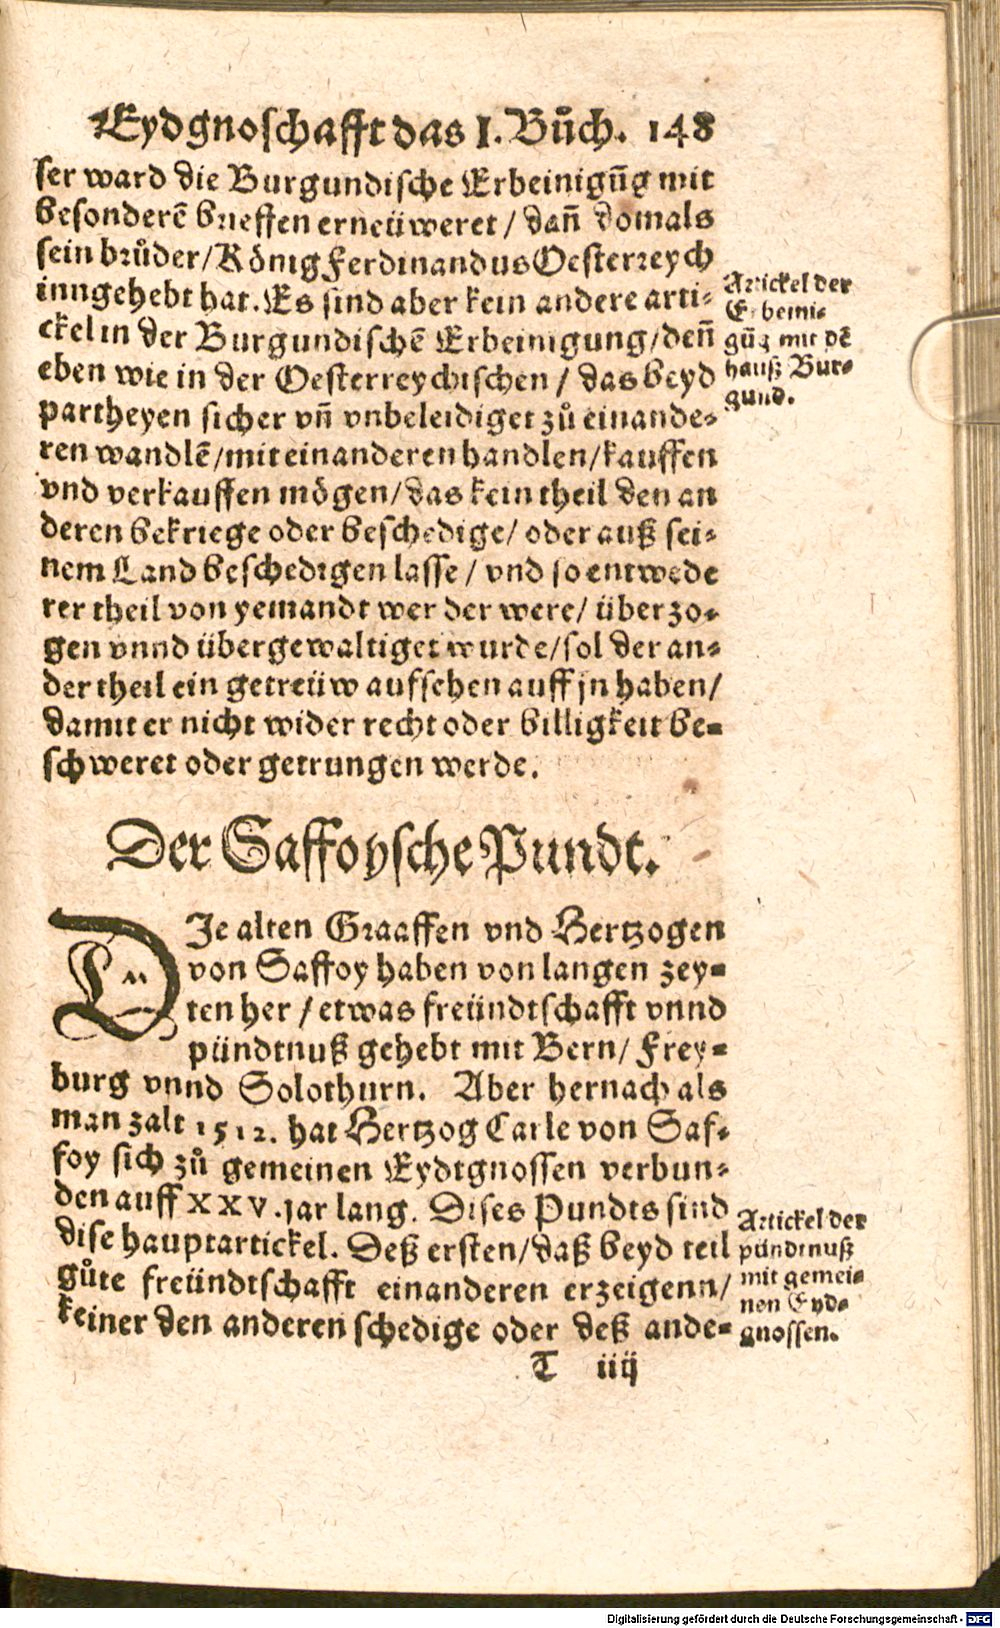 Eydgnoschafft das I. Bůch. 148
ser ward die Burgundische Erbeinigũg mit
besonderẽ brieffen erneüweret / dañ domals
sein brůder / König Ferdinandus Oesterreych
inngehebt hat. Es sind aber kein andere arti-
ckel in der Burgundischẽ Erbeinigung / deñ
eben wie in der Oesterreychischen / das beyd
partheyen sicher vñ vnbeleidiget zů einande-
ren wandlẽ / mit einanderen handlen / kauffen
vnd verkauffen mögen / das kein theil den an
deren bekriege oder beschedige / oder auß sei-
nem Land beschedigen lasse / vnd so entwede
rer theil von yemandt wer der were / überzo-
gen vnnd übergewaltiget wurde / sol der an-
der theil ein getreüw aufsehen auff jn haben /
damit er nicht wider recht oder billigkeit be-
schweret oder getrungen werde.
Artickel der
Erbeini-
gũg mit dẽ
hauß Bur-
gund.
Der Saffoysche Pundt.
DJe alten Graaffen vnd Hertzogen
von Saffoy haben von langen zey-
ten her / etwas freündtschafft vnnd
pündtnuß gehebt mit Bern / Frey-
burg vnnd Solothurn. Aber hernach als
man zalt 1512. hat Hertzog Carle von Saf-
foy sich zů gemeinen Eydtgnossen verbun-
den auff XXV. jar lang. Dises Pundts sind
dise hauptartickel. Deß ersten / daß beyd teil
gůte freündtschafft einanderen erzeigenn /
keiner den anderen schedige oder deß ande-
Artickel der
pündtnuß
mit gemei-
nen Eyd-
gnossen.
T iiij
Digitalisierung gefördert durch die Deutsche Forschungsgemeinschaft - DFG